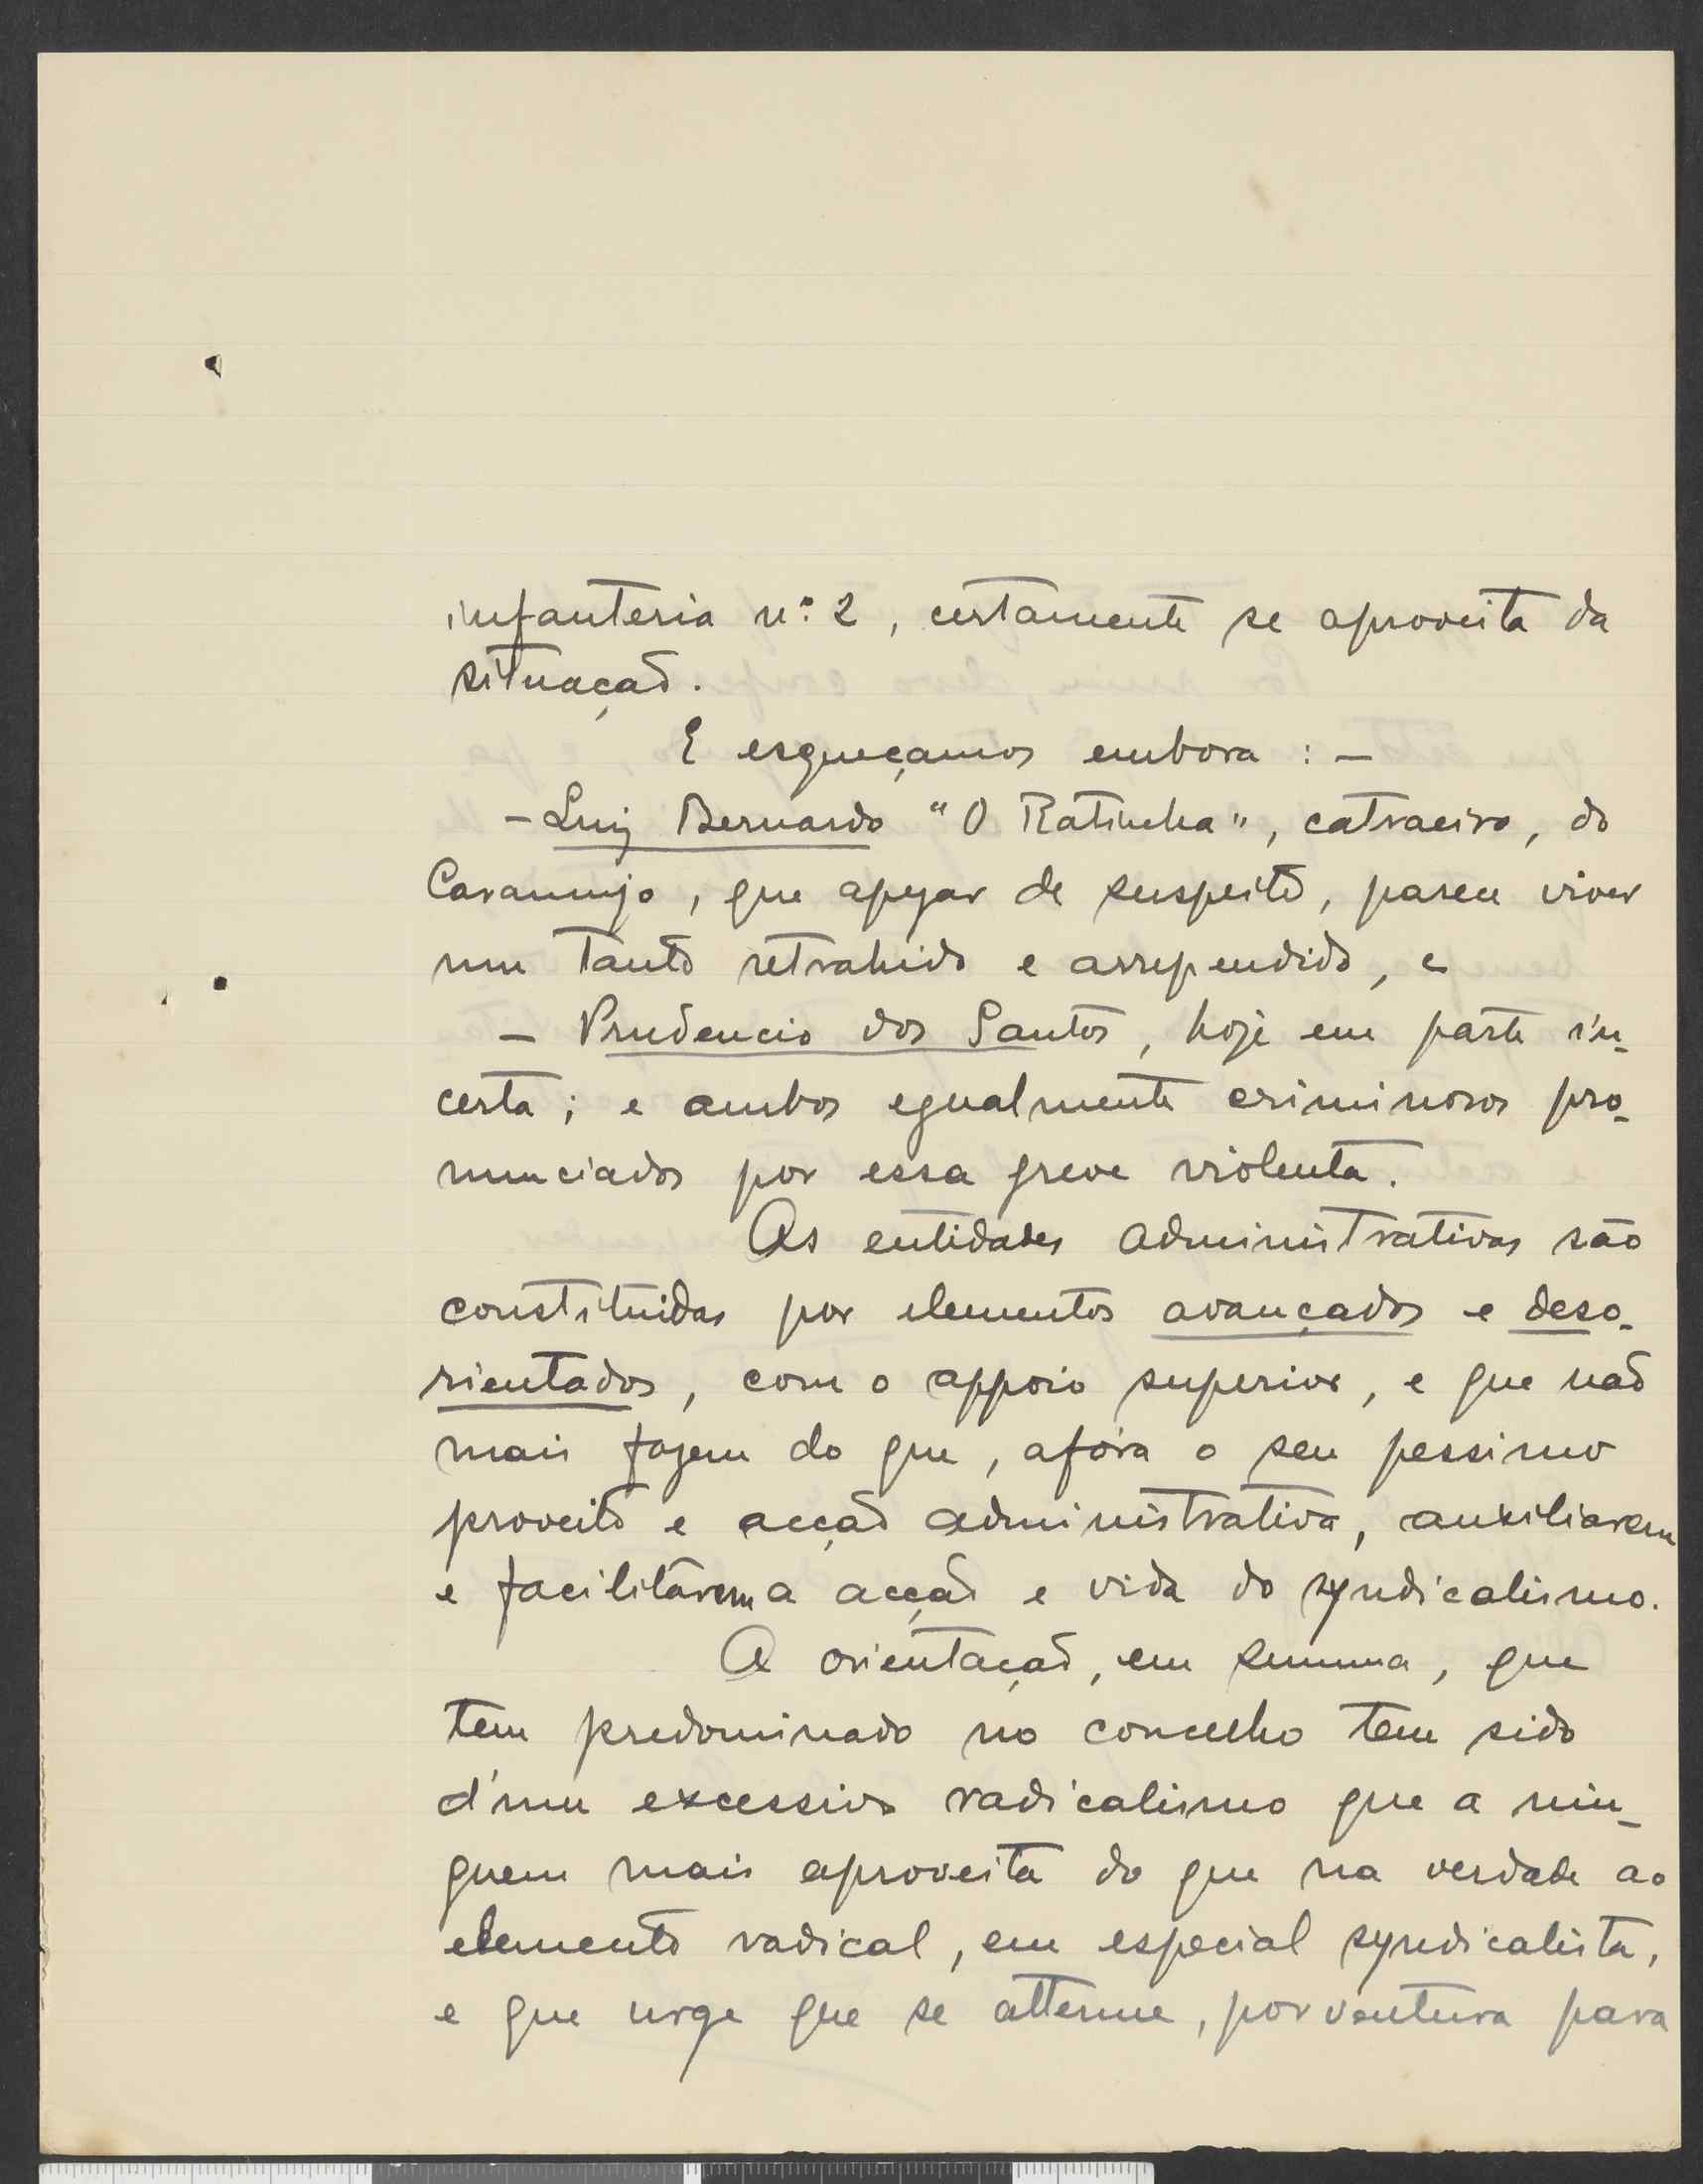 infanteria n.º 2, certamente se aproveita da
situação.
E esqueçamos embora : —
— Luiz Bernardo "O Ratinha", catraeiro, do
Caramujo, que apezar de suspeito, parece viver
um tanto retrahido e arrependido, e
— Prudencio dos Santos, hoje em parte in-
certa; e ambos egualmente criminosos pro-
nunciados por essa greve violenta.
As entidades administrativas são
constituidas por elementos avançados e deso-
rientados, com o appoio superior, e que não
mais fazem do que, afóra o seu pessimo
proveito e acção administrativa, auxiliarem
e facilitárem a acção e vida do syndicalismo.
A orientação, em summa, que
tem predominado no concelho tem sido
d'um excessivo radicalismo que a nin-
guem mais aproveita do que na verdade ao
elemento radical, em especial syndicalista,
e que urge que se attenue, porventura para